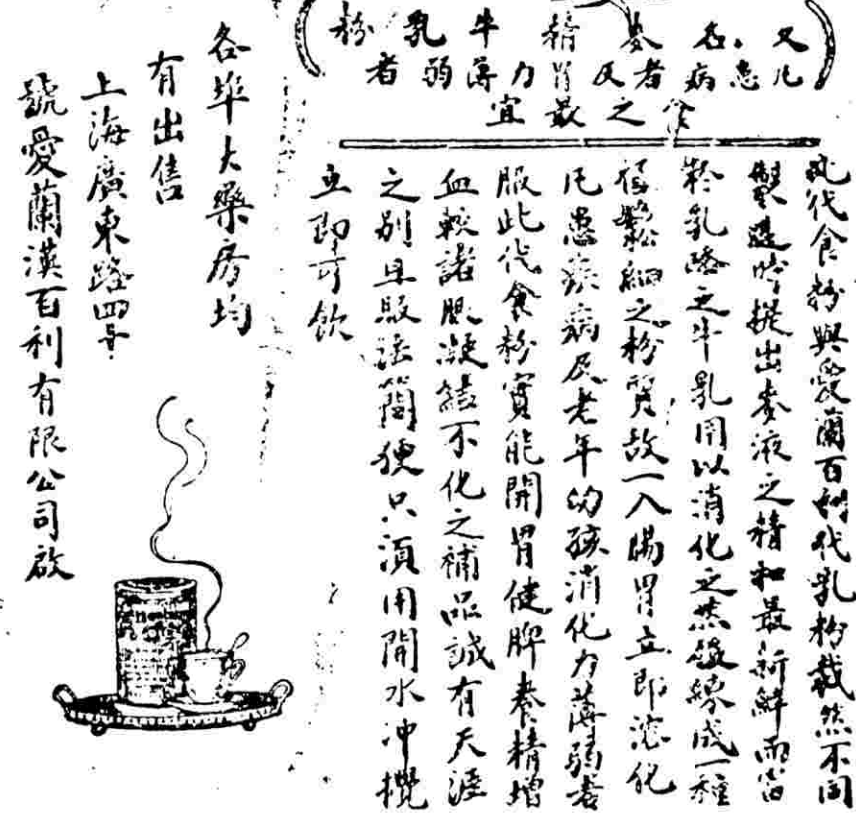 又名麥精牛乳粉
凡患病者及胃力薄弱者
食之最宜
此代食粉與愛蘭百利代乳粉截然不同
製造時提出麥液之精和最新鮮而富
於乳酪之牛乳用以消化之蒸發煉成一種
極鬆細之粉質故一入腸胃立即溶化
凡患疾病及老年幼孩消化力薄弱者
服此代食粉實能開胃健脾養精增
血較諸凝結不化之補品誠有天涯
之別且服法簡便只須用開水冲攪
立即可飲
各埠大藥房均
有出售
上海廣東路四号
號愛蘭漢百利有限公司啟